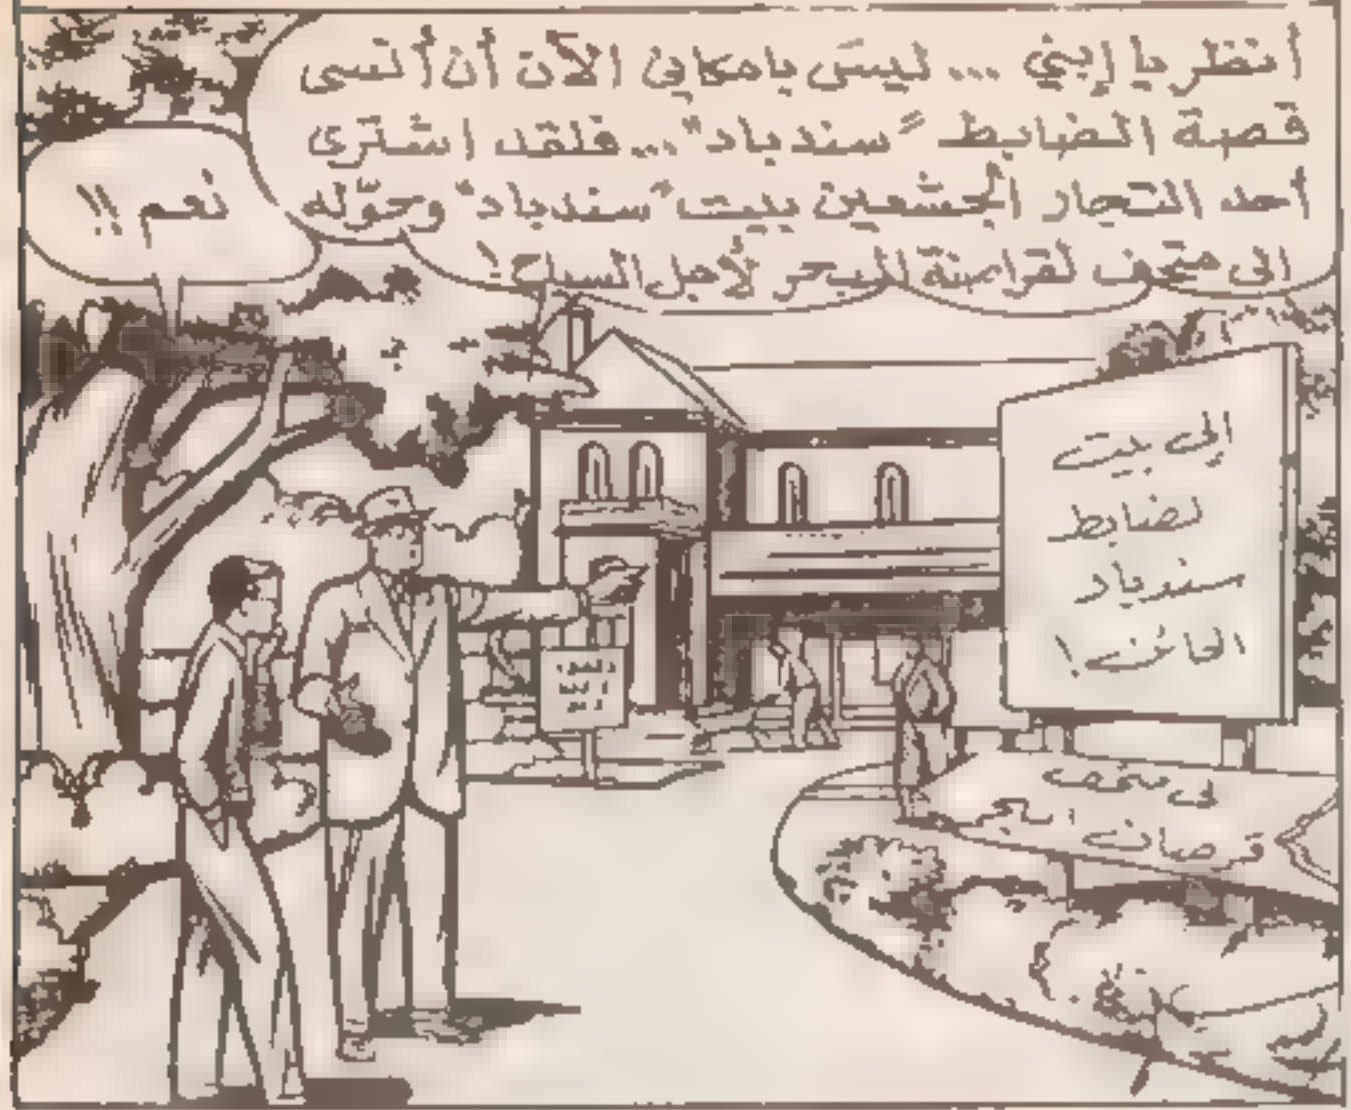 أنظر يا إبني ... ليسَ بإمكاني الآن أن أنسى
قصة الضابط "سندباد"... فلقد اشترى
أحد التجار الجشعين بيت "سندباد" وحوّله
الى متحف لقراصنة البحر لأجل السياح!
نعم !!
إلى بيت
لضابط
سندباد
الخائن!
لى متحف
قرصان البحر